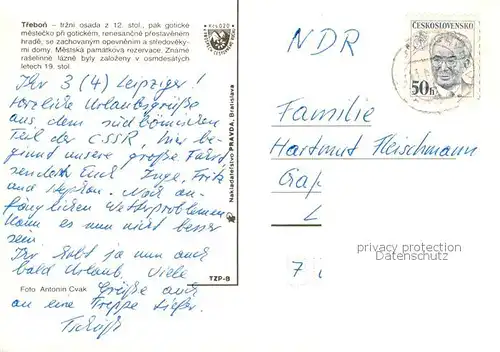 Třeboň – tržní osada z 12. stol., pak gotické
městečko při gotickém, renesančně přestavěném
hradě, se zachovaným opevněním a středověký-
mi domy. Městská památková rezervace. Známé
rašelinné lázně byly založeny v osmdesátých
letech 19. stol.
Kčs 0,20
Ihr 3 (4) Leipziger!
Herzliche Urlaubsgrüße
aus dem südböhmischen
Teil der CSSR, hier be-
ginnt unsere große Fahrt
senden Euch Inge, Fritz
und Stephan. Nach an-
fänglichen Wetterproblemen
kann es nun nicht besser
sein.
Ihr habt ja nun auch
bald Urlaub, Viele
Grüße auch
an eine Treppe tiefer.
Tschüß
Foto Antonín Cvak
TZP-B
Nakladatelství PRAVDA, Bratislava
ČESKOSLOVENSKO
50 h
NDR
Familie
Hartmut Fleischmann
7
privacy protection
Datenschutz